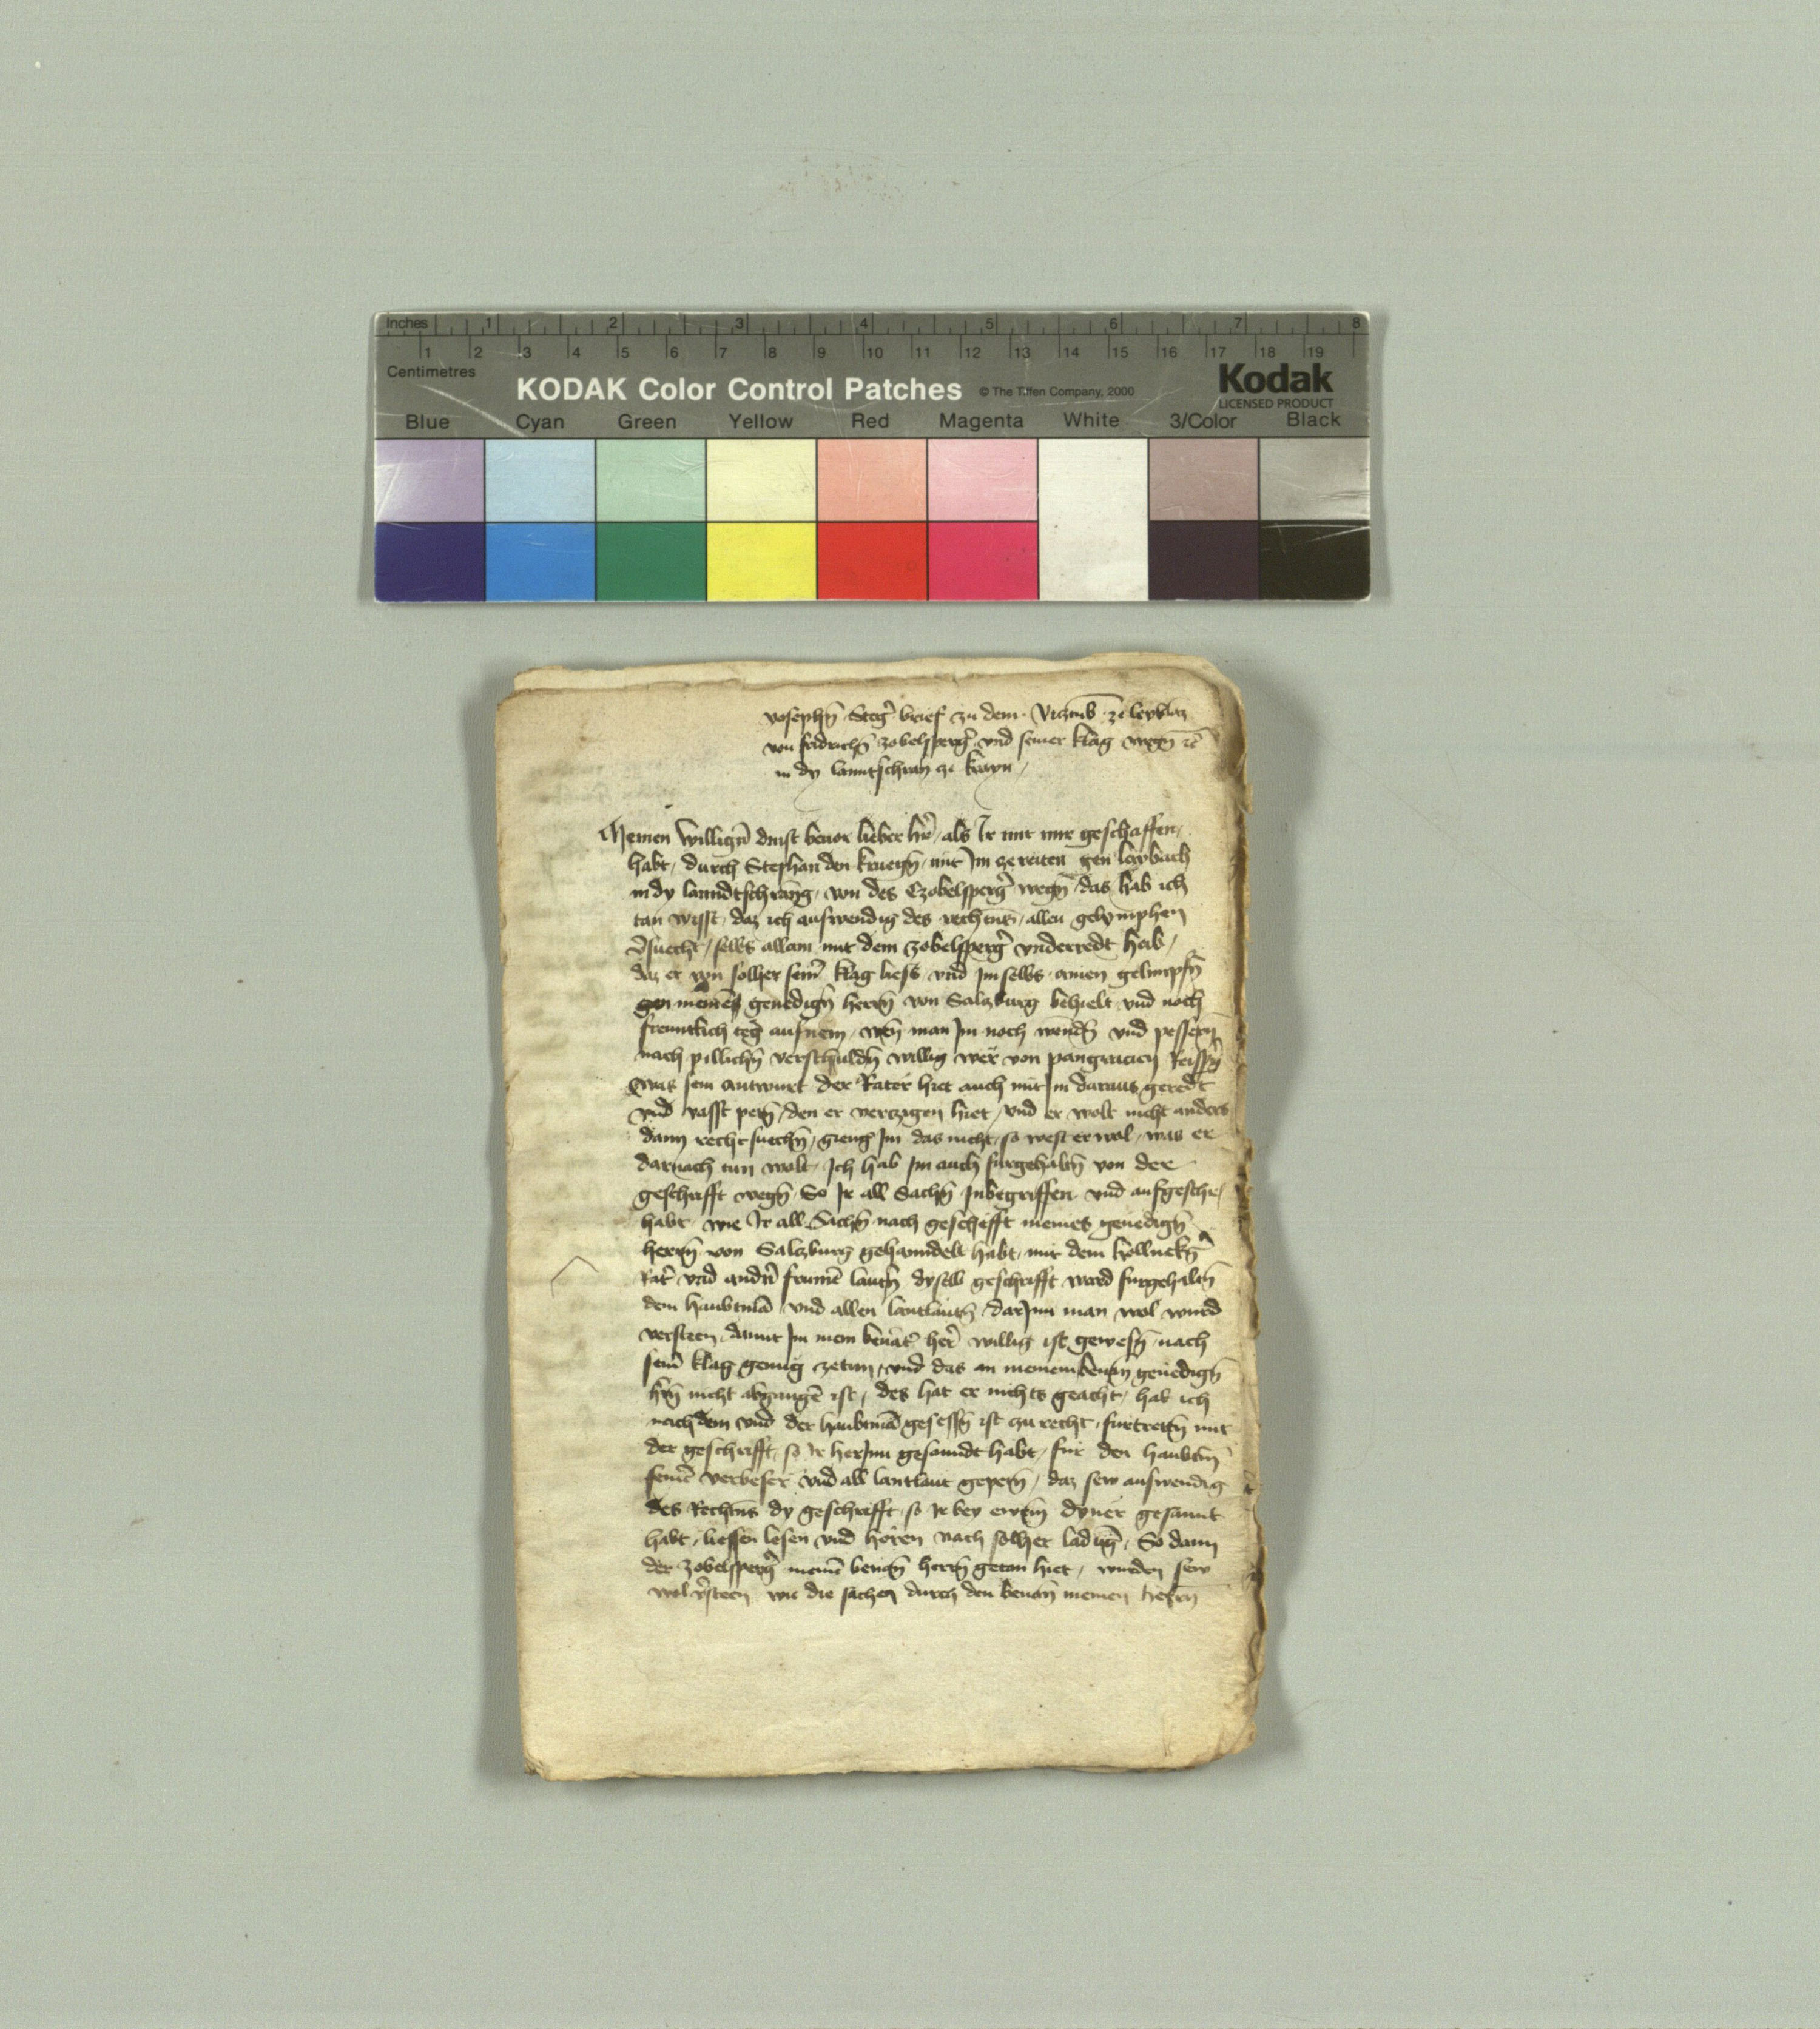 Inches 1 2 3 4 5 6 7 8
1 2 3 4 5 6 7 8 9 10 11 12 13 14 15 16 17 18 19
Centimetres
KODAK Color Control Patches © The Tiffen Company, 2000 Kodak
LICENSED PRODUCT
Blue Cyan Green Yellow Red Magenta White 3/Color Black
brief zu dem
von fridrichn̄ zobelsperg̉ vnd seiner klag wegn̄
in dy lanntschran ze krayn
Meinen willign̄ dinst beuor lieber her̉ / als Ir mit mir geschaffen
habt / durch Stephan den mit Im ze reiten gen leybach
in dy lanndtschrang / von des Czobelsperg̉ wegn̄ / das hab ich
tan wisst / daz ich auswendig des rechtns / allen gelymphen
v̉suecht / selbs allain mit dem zobelsperg̉ vnderredt hab /
daz er von solher sein̉ klag liess vnd Im selbs ainen gelimpfn̄
gen meinē genedign̄ herrn̄ von Salzburg behielt vnd noch
freuntlich teg aufnem / man Im noch wendn̄ vnd pessern
nach pillichn̄ verschuldn̄ willig wer von pangraczen
was sein antwurt der Rater hiet auch mit Im daraus geredt
vnd vasst petn̄ / den er verczigen hiet / vnd er wolt nicht anders
dann recht suechn̄ / gieng Im das nicht / so west er wol / was er
darnach tun wolt / Ich hab Im auch furgehaltn̄ von der
geschrifft wegn̄ / So Ir all Sachn̄ Inbegriffen vnd
habt wie Ir all Sachn̄ nach geschefft meines genedign̄
herrn̄ von Salzburg gehanndelt habt / mit dem
Rat̉ vnd andn̉ frumē lautn̄ dyselb geschrifft ward furgehaltn̄
dem haubtmā vnd allen lantlautn̄ / dar Inn man wol wurd
versteen / damit Im mein benāt̉ her̉ willig ist gewesn̄ nach
sein̉ klag genug zetun / vnd das an meinem benan̄ genedign̄
hrn̄ nicht abgangē ist / des hat er nichts geacht / hab ich
nach dem vnd der haubtmā gesessn̄ ist zu recht / furtretn̄ mit
der geschrifft / so Ir her Inn gesanndt habt / fur den haubtm̄
seinē verbeser vnd all lantlaut gepetn̄ / daz sew auswendig
des Rechtns dy geschrifft / so Ir bey ewrm̄ dyner gesannt
habt / liessen lesen vnd horen nach solher ladūg / So dann
der zobelsperg̉ meinē benan̄ herrn̄ getan hiet / wurden sew
wol v̉steen wie die sachen durch den benan̄ meinen herrn